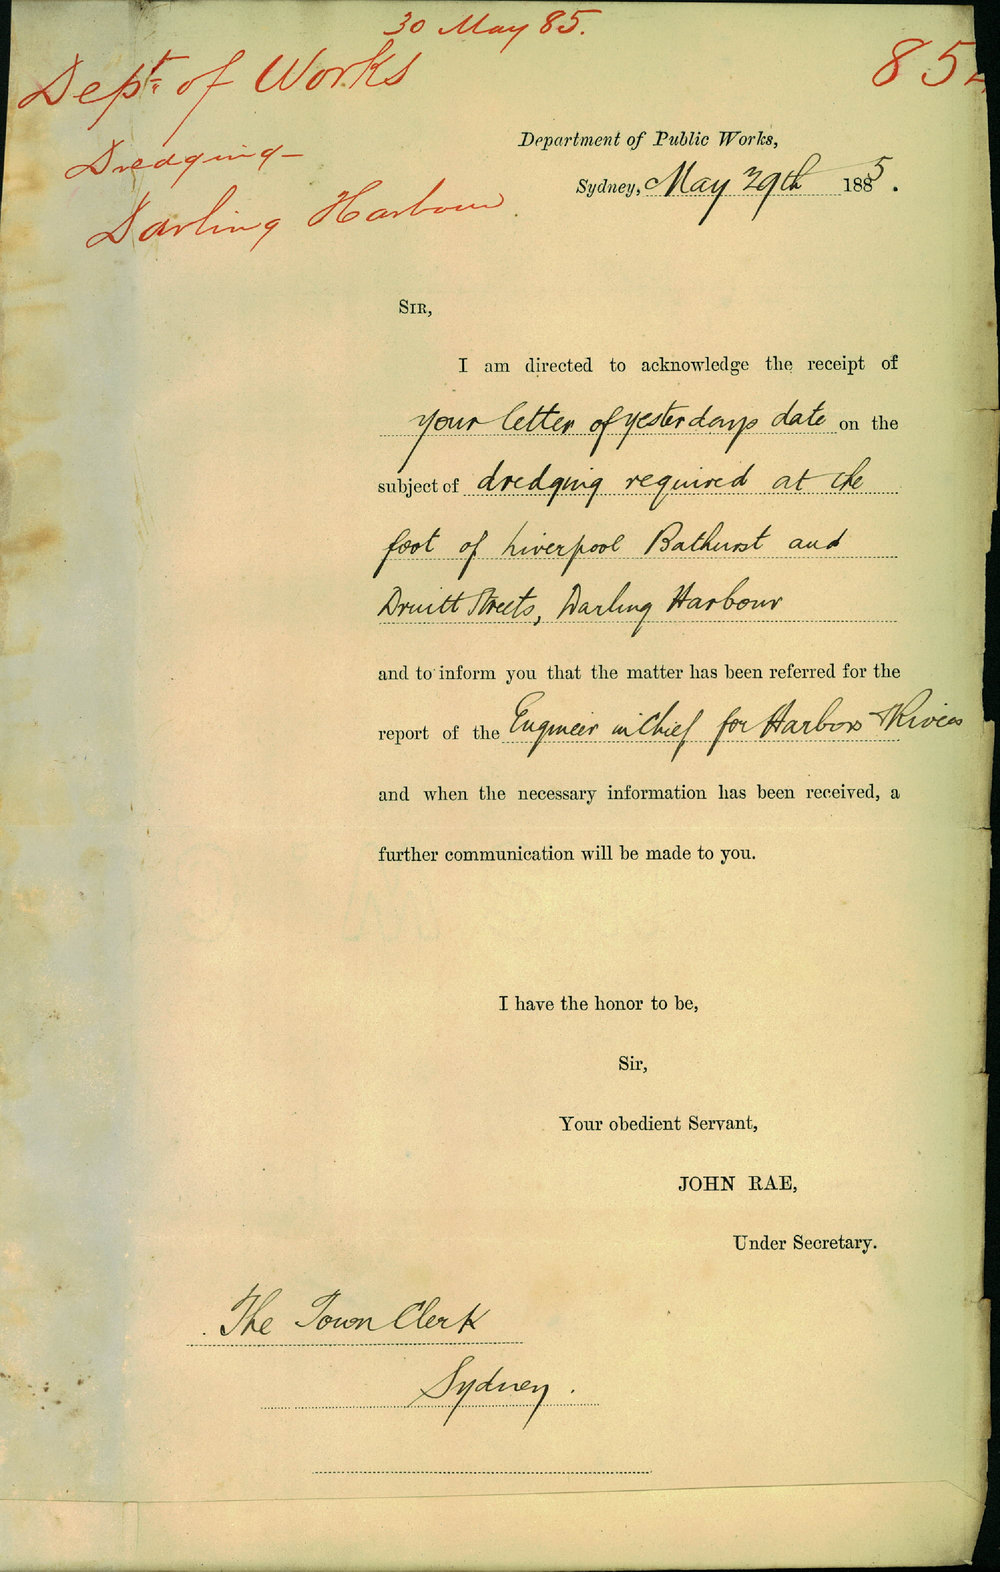 30 May 85.
Dept. of Works
Dredging
Darling Harbour
85
Department of Public Works,
Sydney, May 29th 1885.
SIR,
I am directed to acknowledge the receipt of
your letter of yesterdays date on the
subject of dredging required at the
foot of Liverpool Bathurst and
Druitt Streets, Darling Harbour
and to inform you that the matter has been referred for the
report of the Engineer in Chief for Harbors & Rivers
and when the necessary information has been received, a
further communication will be made to you.
I have the honor to be,
Sir,
Your obedient Servant,
JOHN RAE,
Under Secretary.
The Town Clerk
Sydney.